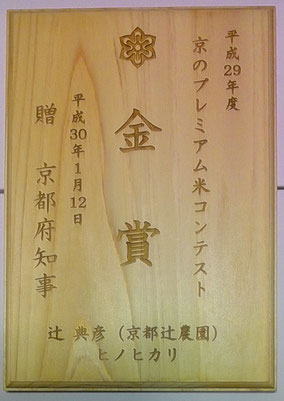 平成29年度
京のプレミアム米コンテスト
金賞
平成30年1月12日
贈 京都府知事
辻 典彦（京都辻農園）
ヒノヒカリ